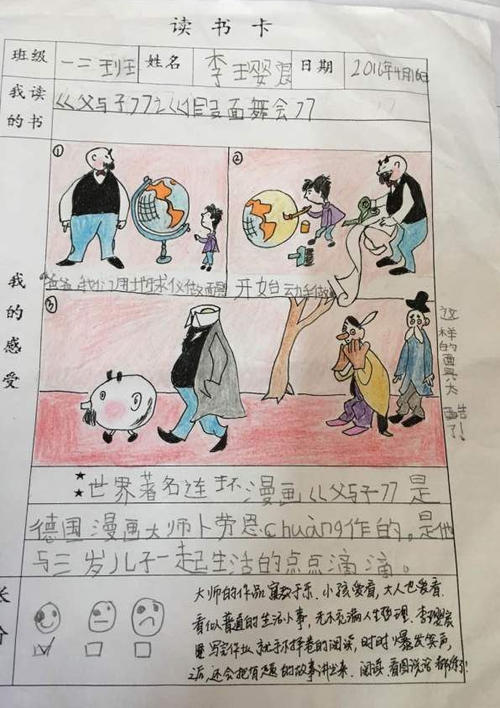 读书卡
班级 一二班 姓名 李珏 日期 2016年4月16日
我读的书 《父与子》之《假面舞会》
我的感受
①
②
爸爸,我们用地球仪做面具
开始动手做
③
这样的面具太酷了!
★世界著名连环漫画《父与子》是
★德国漫画大师卜劳恩chuàng作的。是他
与三岁儿子一起生活的点点滴滴。
大师的作品寓教于乐。小孩爱看,大人也爱看。
看似普通的生活小事,无不充满人生哲理。李
写完作业就手不择卷的阅读,时时爆发笑声,
之后,还会把有趣的故事讲出来。阅读、看图说话